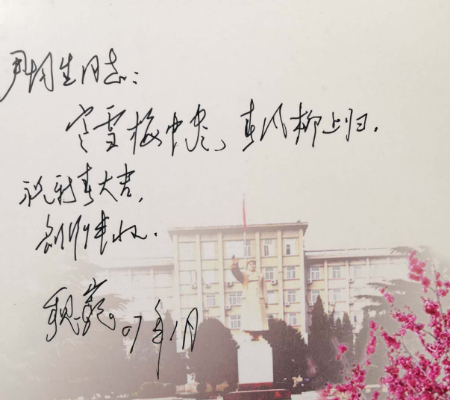 生同志:
寒雪梅中尽,春风柳上归.
祝新春大吉,
创作丰收.
魏巍.07年1月